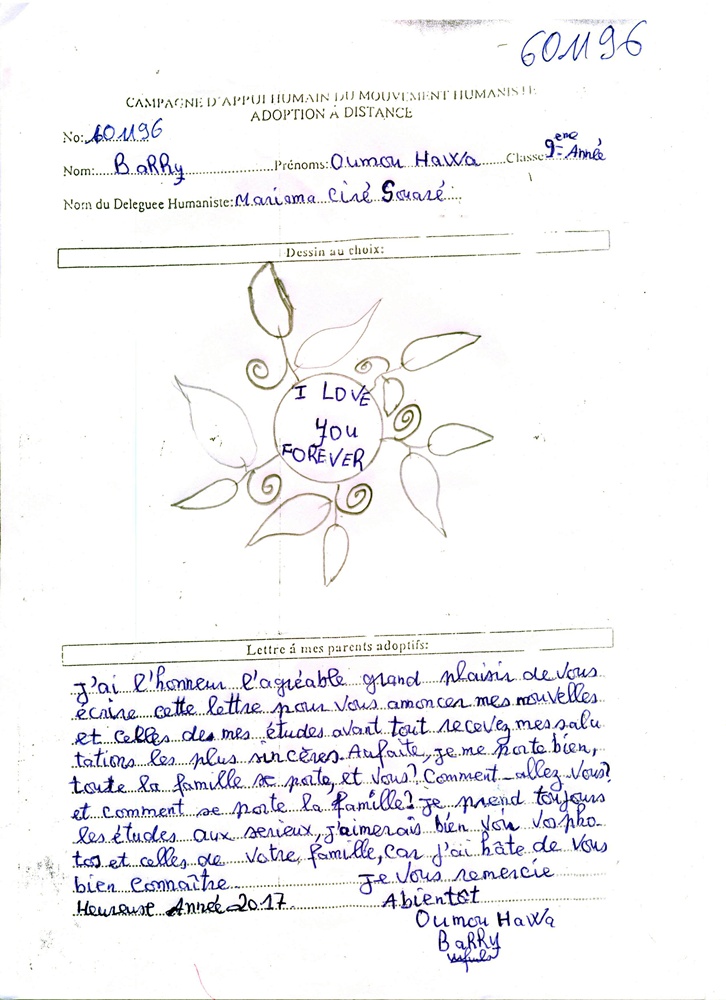 601196
CAMPAGNE D'APPUI HUMAIN DU MOUVEMENT HUMANISTE
ADOPTION A DISTANCE
No: 601196
Nom: BaRRy Prénoms: Oumou HaWa Classe: 9ème Année
Nom du Deleguee Humaniste: Mariama Ciré Souaré
Dessin au choix:
I LOVE
YOU
FOREVER
Lettre á mes parents adoptifs:
J'ai l'honneur l'agréable grand plaisir de Vous
écrire cette lettre pour Vous annoncer mes nouvelles
et celles des mes études avant tout recevez mes salu
tations les plus sincères. Aufaite, je me porte bien,
toute la famille se porte, et vous? Comment-allez Vous?
et comment se porte la famille? Je prend toujours
les études aux serieux, j'aimerais bien voir vos pho-
tos et celles de Votre famille, car j'ai hâte de Vous
bien connaître Je Vous remercie
Heureuse Année 2017 Abientôt
Oumou HaWa
BaRRy